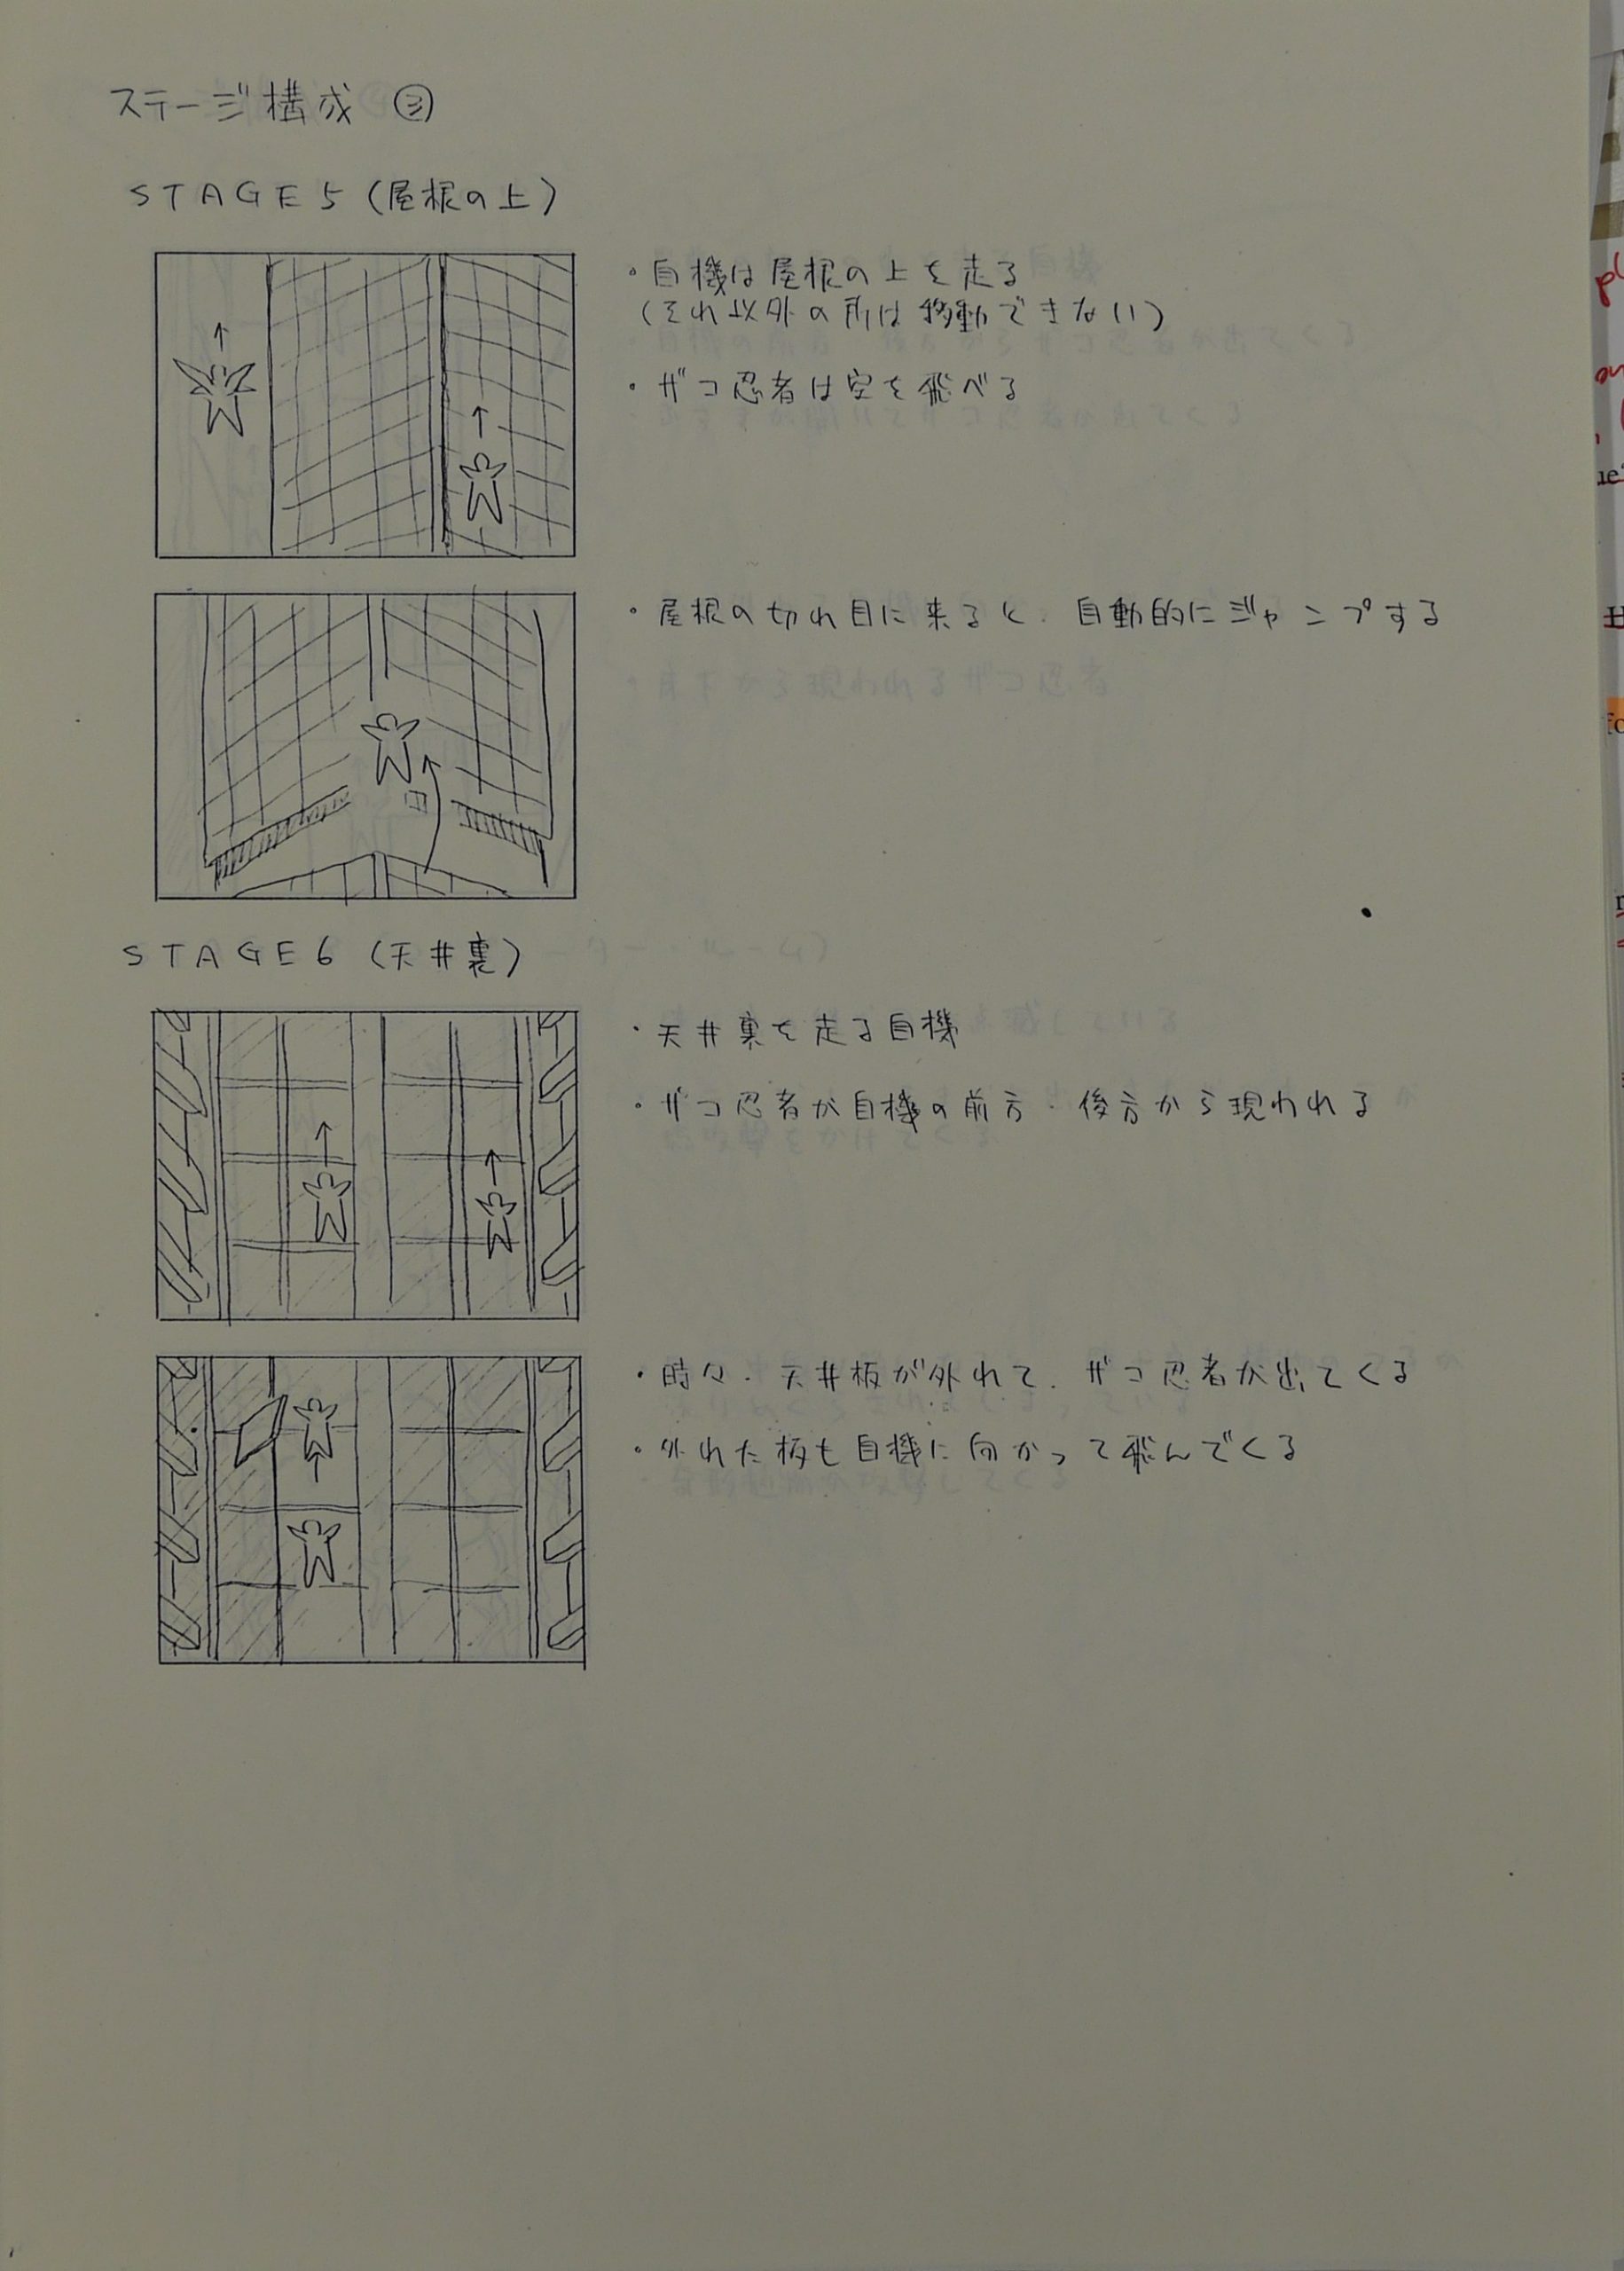 ステージ構成 ③
STAGE5(屋根の上)
・自機は屋根の上を走る
(それ以外の所は移動できない)
・ザコ忍者は空を飛べる
・屋根の切れ目に来ると、自動的にジャンプする
STAGE6(天井裏)
・天井裏を走る自機
・ザコ忍者が自機の前方・後方から現われる
・時々、天井板が外れて、ザコ忍者が出てくる
・外れた板も自機に向かって飛んでくる